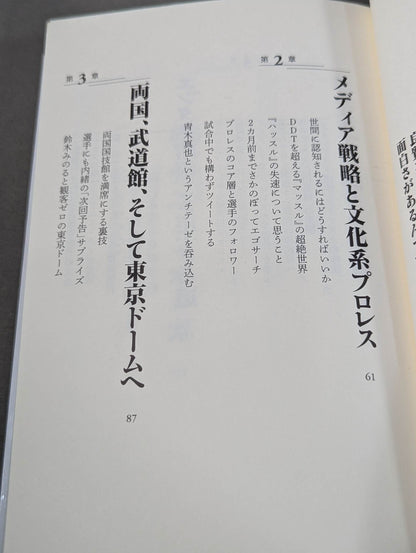 面白さがあるん
第2章
メディア戦略と文化系プロレス
61
世間に認知されるにはどうすればいいか
DDTを超える『マッスル』の超絶世界
『ハッスル』の失速について思うこと
2カ月前までさかのぼってエゴサーチ
プロレスのコア層と選手のフォロワー
試合中でも構わずツイートする
青木真也というアンチテーゼを呑み込む
第3章
両国、武道館、そして東京ドームへ
87
両国国技館を満席にする裏技
選手にも内緒の「次回予告」サプライズ
鈴木みのると観客ゼロの東京ドーム